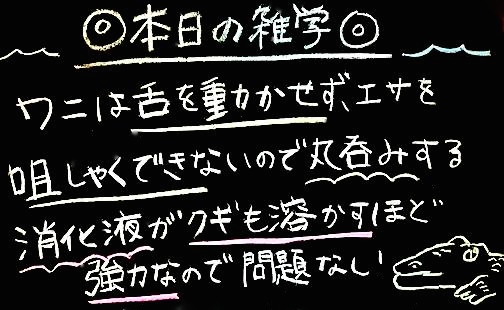 ◎本日の雑学◎
ワニは舌を動かせず、エサを
咀しゃくできないので丸呑みする
消化液がクギも溶かすほど
強力なので問題なし!